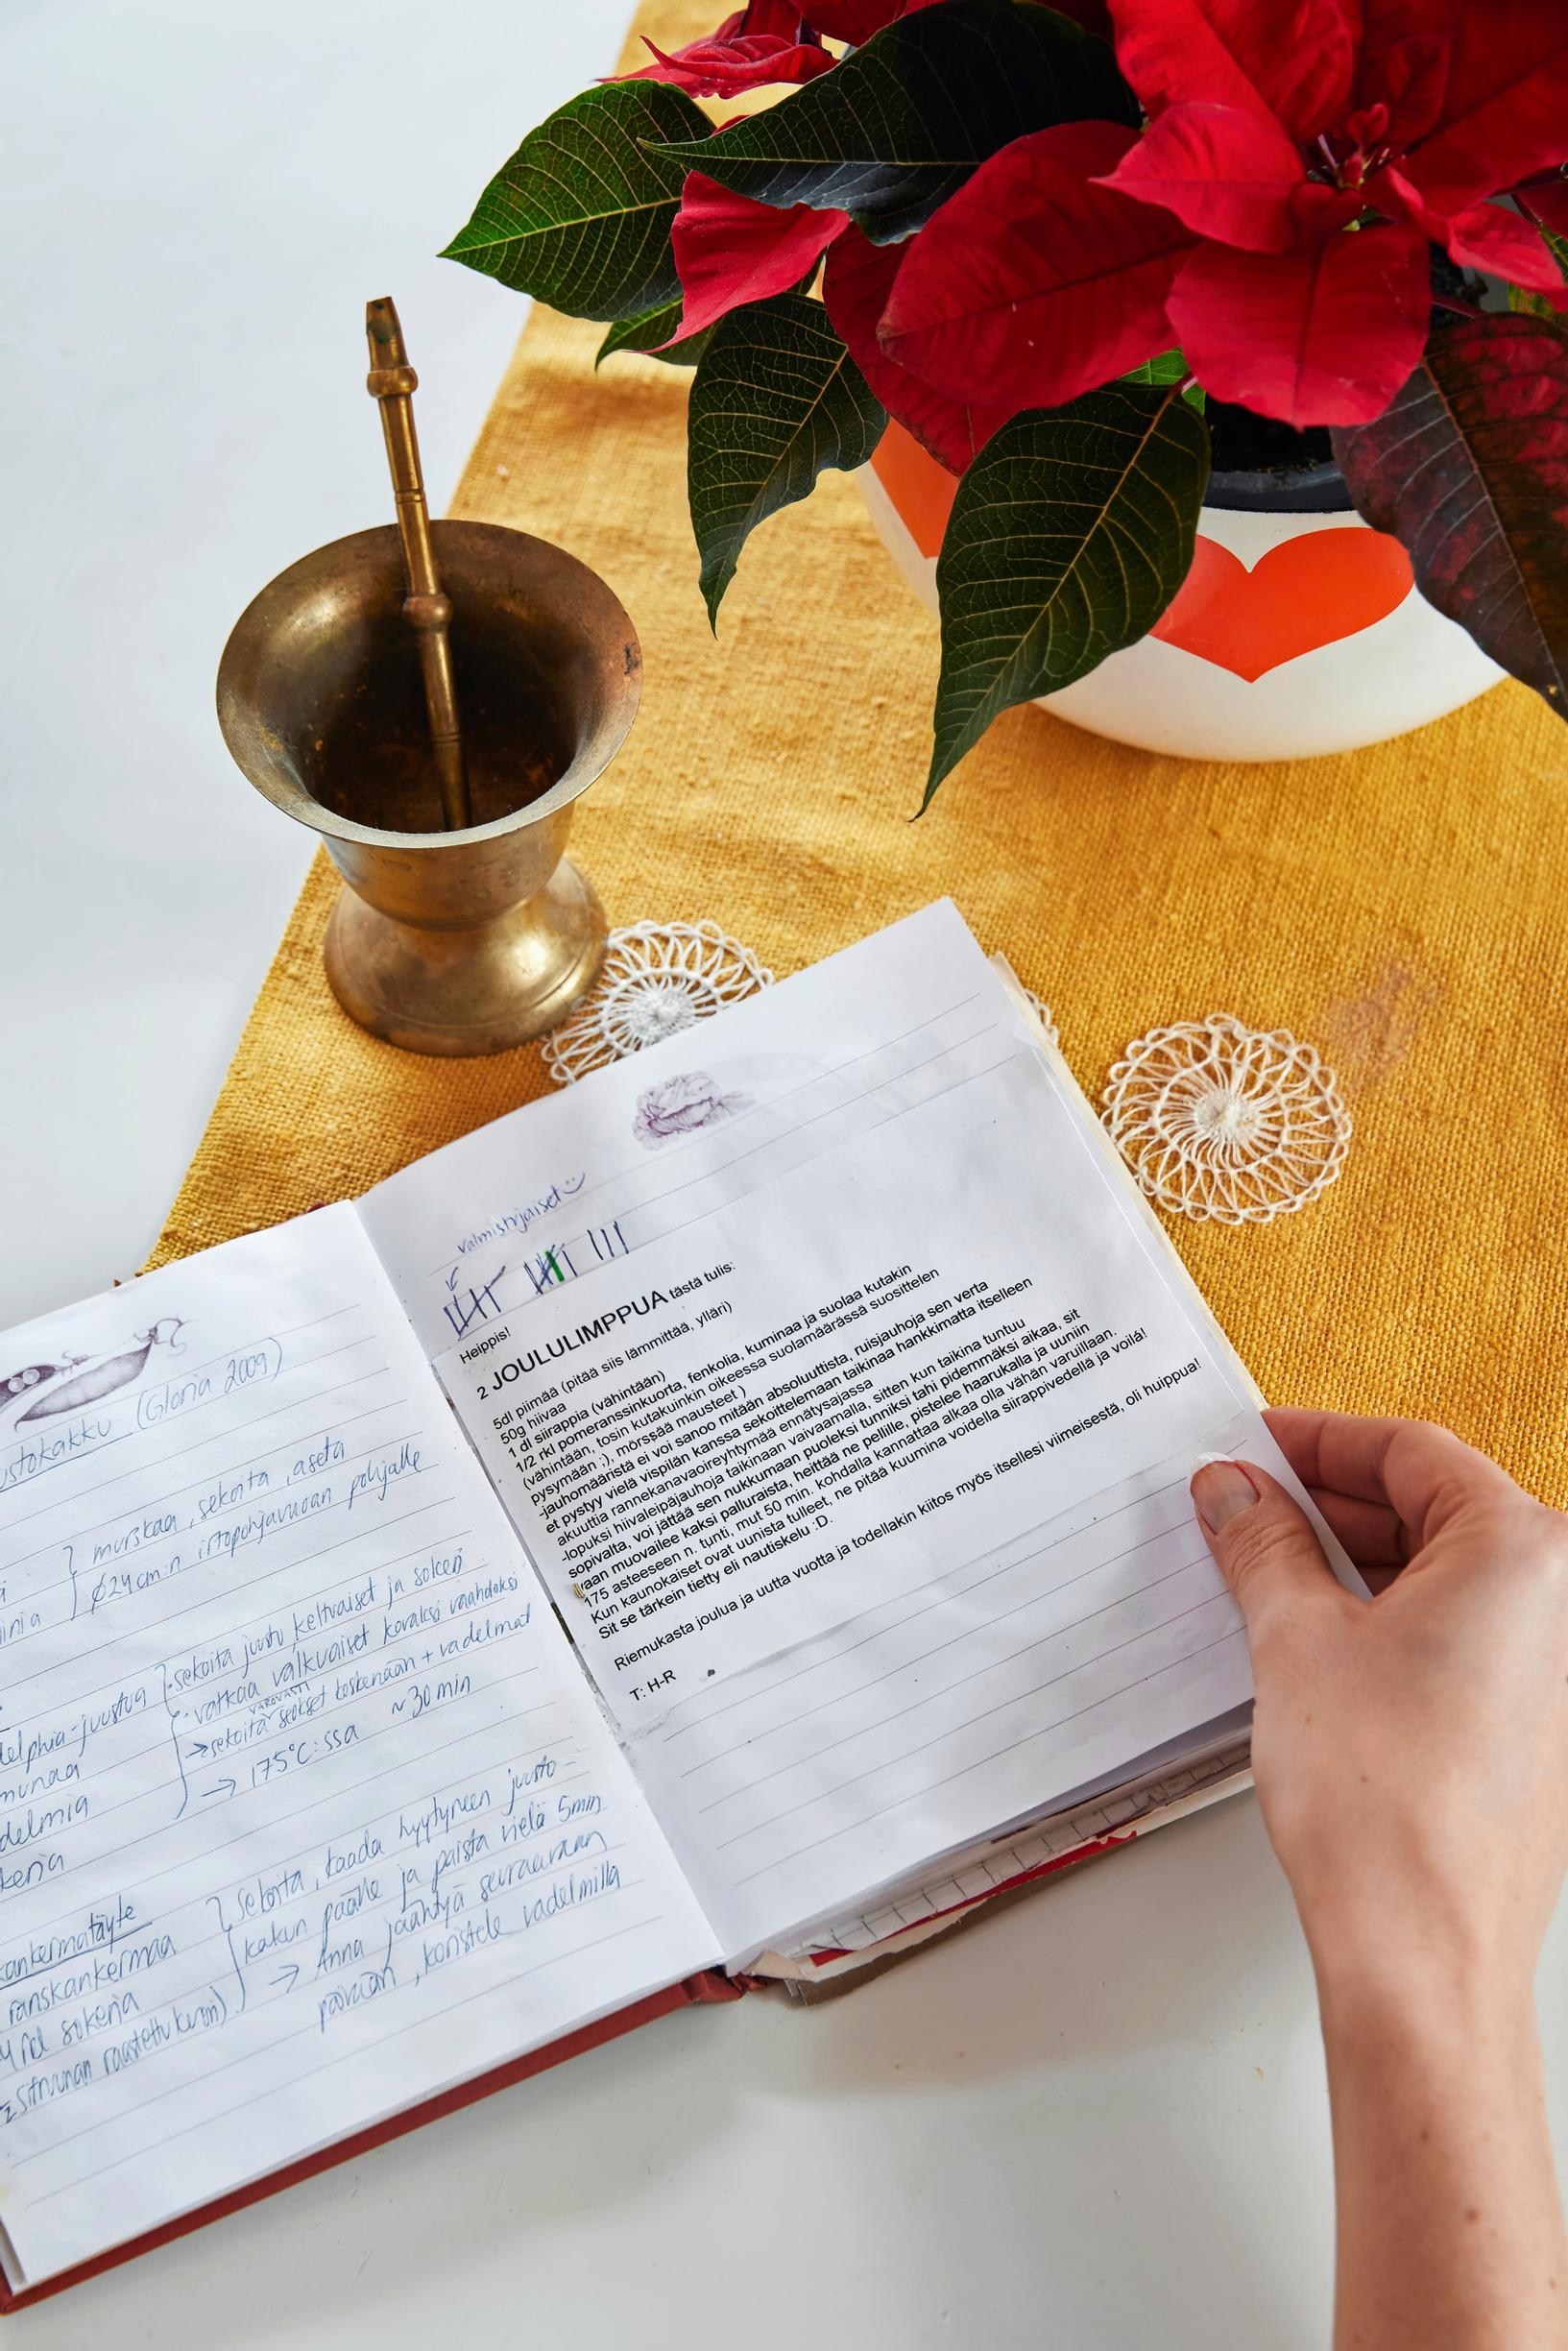 ustokakku (Gloria 2009)
murskaa, sekoita, aseta
ø24cm:n irtopohjavuoan pohjalle
sekoita juusto, keltuaiset ja sokeri
elphia-juustoa
vatkaa valkuaiset kovaksi vaahdoksi
munaa
varovasti
→ sekoita seokset keskenään + vadelmat
delmia
→ 175°C:ssa ~30 min
keria
ankermatäyte
sekoita, kaada hyytyneen juusto-
ranskankermaa
kakun päälle ja paista vielä 5min
rkl sokeria
→ Anna jäähtyä seuraavaan
sitruunan raastettu kuori)
päivään, koristele vadelmilla
valmistujaiset
Heippis!
2 JOULULIMPPUA tästä tulis:
5dl piimää (pitää siis lämmittää, ylläri)
50g hiivaa
1 dl siirappia (vähintään)
1/2 rkl pomeranssinkuorta, fenkolia, kuminaa ja suolaa kutakin
(vähintään, tosin kutakuinkin oikeessa suolamäärässä suosittelen
pysymään ;), mörssää mausteet )
-jauhomääristä ei voi sanoo mitään absoluuttista, ruisjauhoja sen verta
et pystyy vielä vispilän kanssa sekoittelemaan taikinaa hankkimatta itselleen
akuuttia rannekanavaoireyhtymää ennätysajassa
-lopuksi hiivaleipäjauhoja taikinaan vaivaamalla, sitten kun taikina tuntuu
sopivalta, voi jättää sen nukkumaan puoleksi tunniksi tahi pidemmäksi aikaa, sit
vaan muovailee kaksi palluraista, heittää ne pellille, pistelee haarukalla ja uuniin
175 asteeseen n. tunti, mut 50 min. kohdalla kannattaa alkaa olla vähän varuillaan.
Kun kaunokaiset ovat uunista tulleet, ne pitää kuumina voidella siirappivedellä ja voilá!
Sit se tärkein tietty eli nautiskelu :D.
Riemukasta joulua ja uutta vuotta ja todellakin kiitos myös itsellesi viimeisestä, oli huippua!
T: H-R